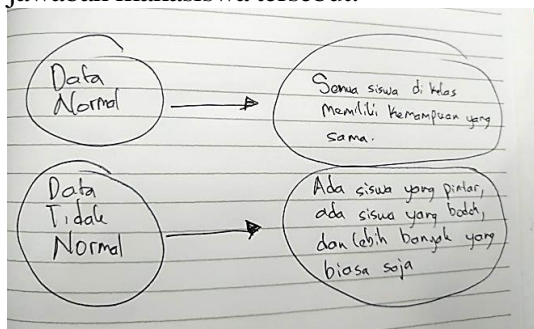 jawaban mahasiswa tersebut.
Data
Normal
Semua siswa di kelas
memiliki kemampuan yang
sama.
Data
Tidak
Normal
Ada siswa yang pintar,
ada siswa yang bodoh,
dan lebih banyak yang
biasa saja